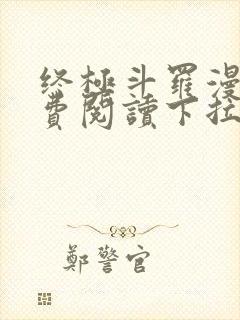 终極斗羅漫
費閱讀下拉
鄭警官